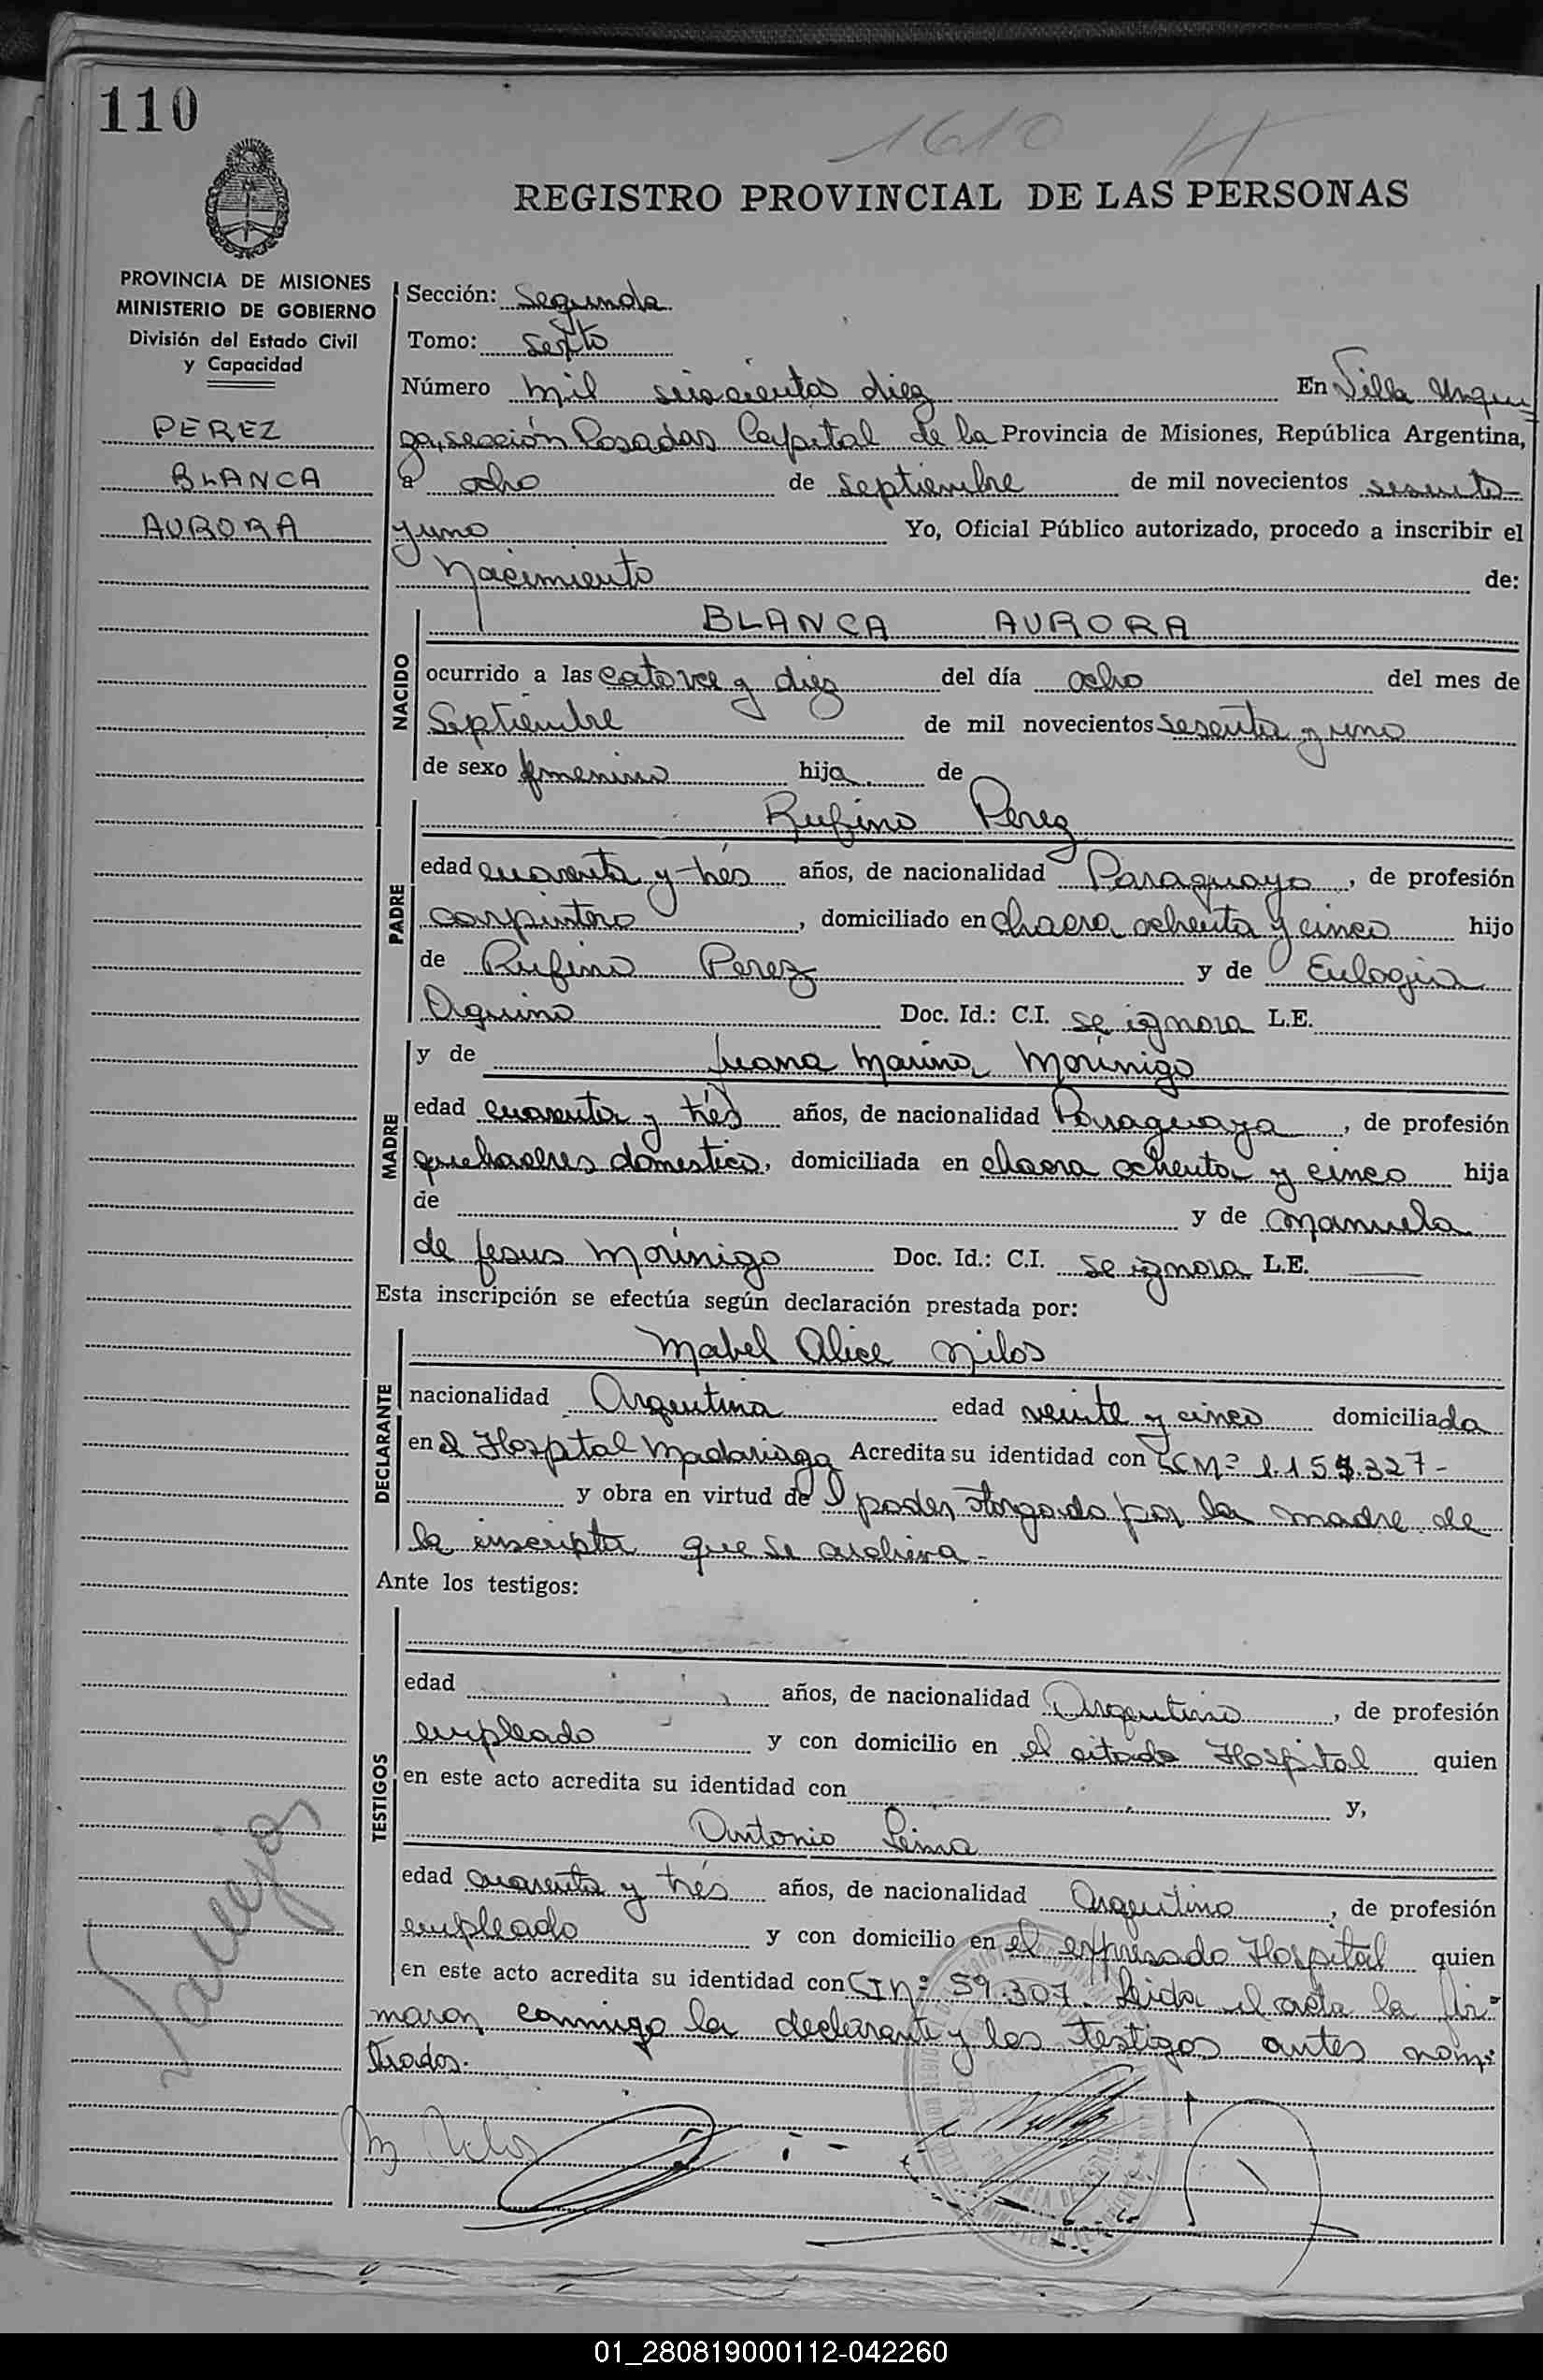 110
1610
REGISTRO PROVINCIAL DE LAS PERSONAS
PROVINCIA DE MISIONES
MINISTERIO DE GOBIERNO
División del Estado Civil
y Capacidad
PEREZ
BLANCA
AURORA
Sección: Segunda
Tomo: Sexto
Número mil seiscientos diez En Villa Urqui
za, sección Posadas Capital de la Provincia de Misiones, República Argentina,
a ocho de septiembre de mil novecientos sesenta
y uno Yo, Oficial Público autorizado, procedo a inscribir el
Nacimiento de:
NACIDO
BLANCA AURORA
ocurrido a las catorce y diez del día ocho del mes de
Septiembre de mil novecientos sesenta y uno
de sexo femenino hija de
PADRE
Rufino Perez
edad cuarenta y trés años, de nacionalidad Paraguayo, de profesión
carpintero, domiciliado en chacra ochenta y cinco hijo
de Rufino Perez y de Eulogia
Aquino Doc. Id.: C.I. se ignora L.E.
MADRE
y de Juana Marina Morinigo
edad cuarenta y trés años, de nacionalidad Paraguaya, de profesión
quehaceres domestico, domiciliada en chacra ochenta y cinco hija
de y de Manuela
de Jesus Morinigo Doc. Id.: C.I. se ignora L.E.
Esta inscripción se efectúa según declaración prestada por:
DECLARANTE
Mabel Alice Milos
nacionalidad Argentina edad veinte y cinco domiciliada
en el Hospital Madariaga Acredita su identidad con
y obra en virtud del poder otorgado por la madre de
la inscripta que se archiva.-
Ante los testigos:
TESTIGOS
edad años, de nacionalidad Argentino, de profesión
empleado y con domicilio en el citado Hospital quien
en este acto acredita su identidad con y,
Antonio Leiva
edad cuarenta y trés años, de nacionalidad Argentino, de profesión
empleado y con domicilio en el expresado Hospital quien
en este acto acredita su identidad con CI nº 59.307. Leida el acta la fir-
maron conmigo la declarante y los testigos antes nom-
brados.
01_280819000112-042260